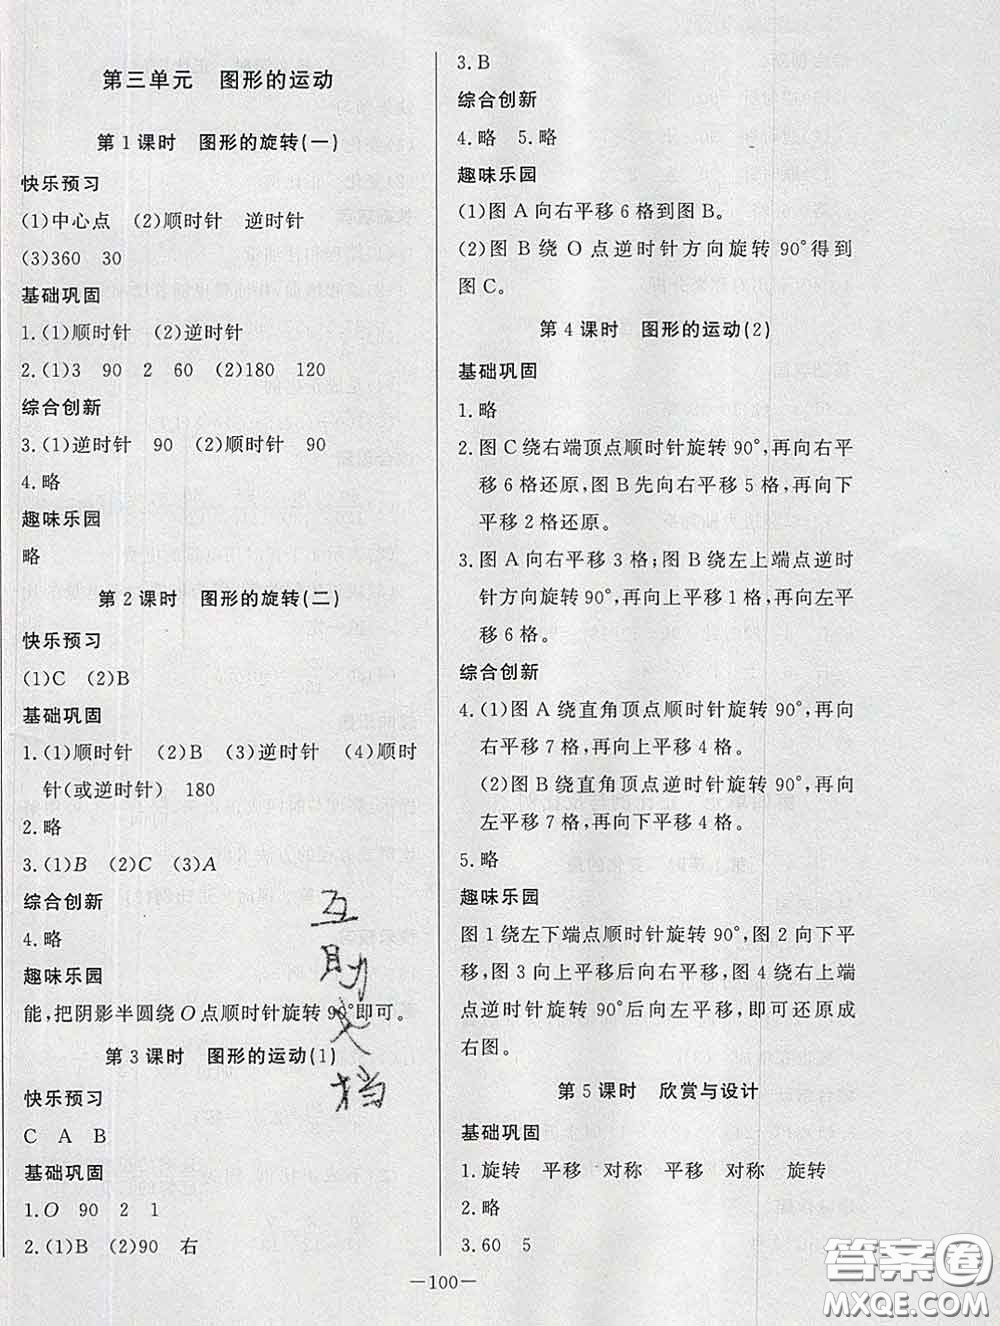 第三单元　图形的运动
第1课时　图形的旋转(一)
快乐预习
(1)中心点　(2)顺时针　逆时针
(3)360　30
基础巩固
1.(1)顺时针　(2)逆时针
2.(1)3　90　2　60　(2)180　120
综合创新
3.(1)逆时针　90　(2)顺时针　90
4.略
趣味乐园
略
第2课时　图形的旋转(二)
快乐预习
(1)C　(2)B
基础巩固
1.(1)顺时针　(2)B　(3)逆时针　(4)顺时
针(或逆时针)　180
2.略
3.(1)B　(2)C　(3)A
综合创新
4.略
趣味乐园
能,把阴影半圆绕O点顺时针旋转90°即可。
第3课时　图形的运动(1)
快乐预习
C　A　B
基础巩固
1.O　90　2　1
2.(1)B　(2)90　右
互
助
文
档
3.B
综合创新
4.略　5.略
趣味乐园
(1)图A向右平移6格到图B。
(2)图B绕O点逆时针方向旋转90°得到
图C。
第4课时　图形的运动(2)
基础巩固
1.略
2.图C绕右端顶点顺时针旋转90°,再向右平
移6格还原,图B先向右平移5格,再向下
平移2格还原。
3.图A向右平移3格;图B绕左上端点逆时
针方向旋转90°,再向上平移1格,再向左平
移6格。
综合创新
4.(1)图A绕直角顶点顺时针旋转90°,再向
右平移7格,再向上平移4格。
(2)图B绕直角顶点逆时针旋转90°,再向
左平移7格,再向下平移4格。
5.略
趣味乐园
图1绕左下端点顺时针旋转90°,图2向下平
移,图3向上平移后向右平移,图4绕右上端
点逆时针旋转90°后向左平移,即可还原成
右图。
第5课时　欣赏与设计
基础巩固
1.旋转　平移　对称　平移　对称　旋转
2.略
3.60　5
—100—
答案卷
MXQE.COM